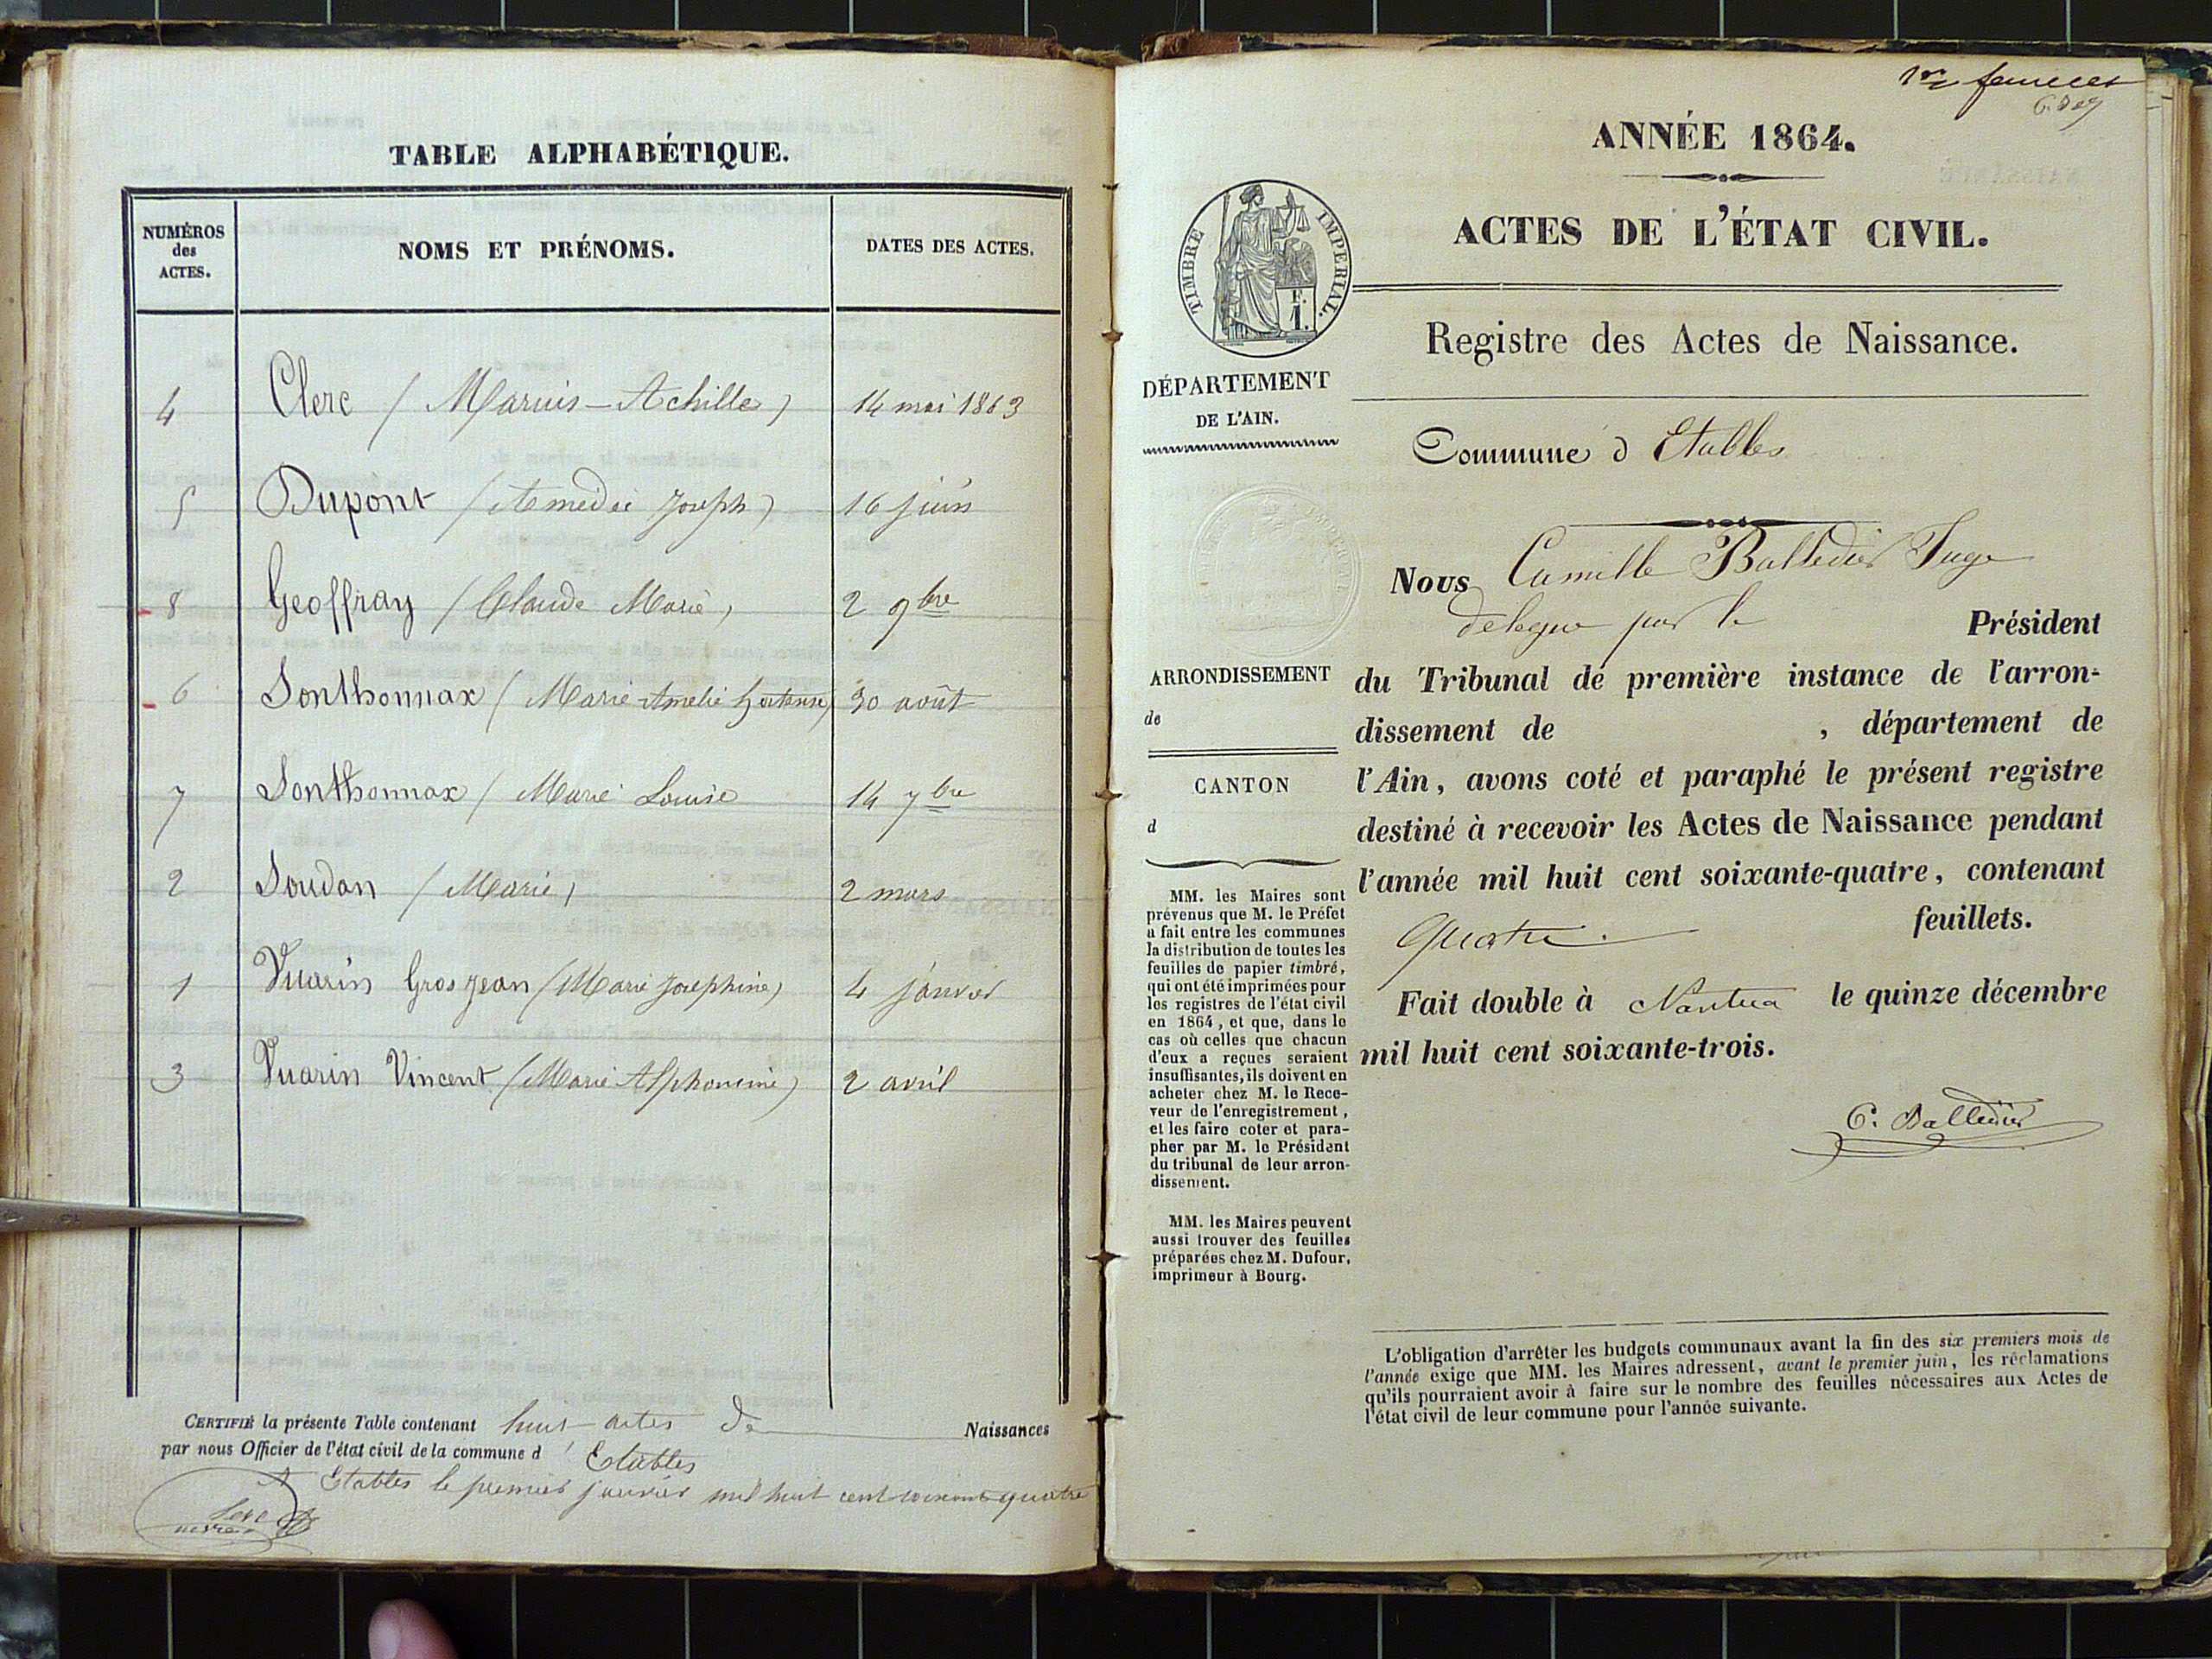 TABLE ALPHABÉTIQUE.
NUMÉROS
des
ACTES.
NOMS ET PRÉNOMS.
DATES DES ACTES.
4 Clerc (Marius-Achille) 14 mai 1863
5 Dupont (Amédée Joseph) 16 juin
8 Geoffray (Claude Marie) 2 9bre
6 Sonthonnax (Marie Amélie hortense) 30 août
7 Sonthonnax (Marie Louise 14 7bre
2 Soudan (Marie) 2 mars
1 Vuarin Grosjean (Marie Joséphine) 4 janvier
3 Vuarin Vincent (Marie Alphonsine) 2 avril
CERTIFIÉ la présente Table contenant huit actes de Naissances
par nous Officier de l'état civil de la commune d' Etables
A Etables le premier janvier mil huit cent soixante quatre
1er feuillet
ANNÉE 1864.
ACTES DE L'ÉTAT CIVIL.
TIMBRE IMPÉRIAL.
Registre des Actes de Naissance.
DÉPARTEMENT
DE L'AIN.
Commune d Etables
Nous Camille Balledier Juge
délégué par le Président
ARRONDISSEMENT
de
CANTON
d
du Tribunal de première instance de l'arron-
dissement de , département de
l'Ain, avons coté et paraphé le présent registre
destiné à recevoir les Actes de Naissance pendant
l'année mil huit cent soixante-quatre, contenant
quatre feuillets.
Fait double à Nantua le quinze décembre
mil huit cent soixante-trois.
C. Balledier
MM. les Maires sont
prévenus que M. le Préfet
a fait entre les communes
la distribution de toutes les
feuilles de papier timbré,
qui ont été imprimées pour
les registres de l'état civil
en 1864, et que, dans le
cas où celles que chacun
d'eux a reçues seraient
insuffisantes, ils doivent en
acheter chez M. le Rece-
veur de l'enregistrement,
et les faire coter et para-
pher par M. le Président
du tribunal de leur arron-
dissement.
MM. les Maires peuvent
aussi trouver des feuilles
préparées chez M. Dufour,
imprimeur à Bourg.
L'obligation d'arrêter les budgets communaux avant la fin des six premiers mois de
l'année exige que MM. les Maires adressent, avant le premier juin, les réclamations
qu'ils pourraient avoir à faire sur le nombre des feuilles nécessaires aux Actes de
l'état civil de leur commune pour l'année suivante.